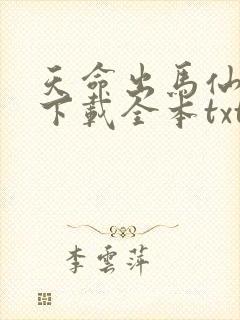 天命出马仙
下载全本txt
李云萍